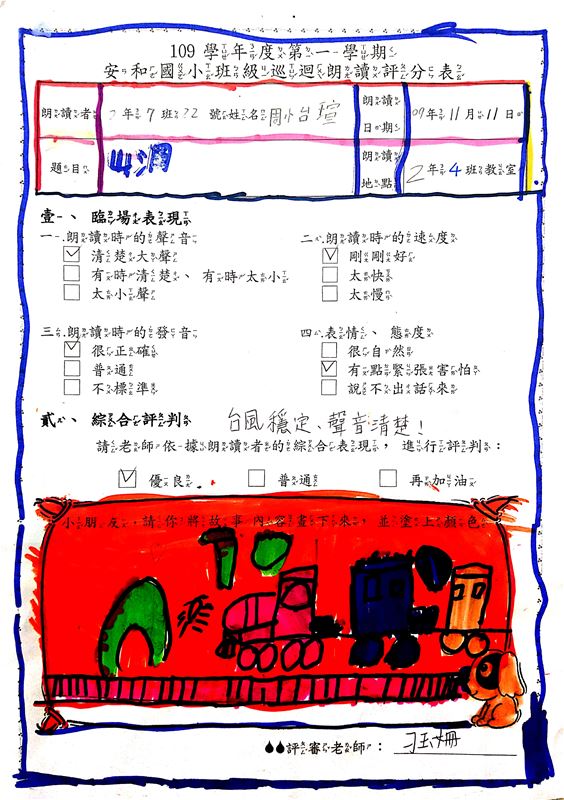 109 學年度第一學期
安和國小班級巡迴朗讀評分表
朗讀者 2年7班22 號姓名 周台瑄 朗讀日期 109年11月11日
題目 山洞 朗讀地點 2年4班教室
壹、臨場表現
一、朗讀時的聲音 二、朗讀時的速度
☑ 清楚大聲 ☑ 剛剛好
☐ 有時清楚、有時太小 ☐ 太快
☐ 太小聲 ☐ 太慢
三、朗讀時的發音 四、表情、態度
☑ 很正確 ☐ 很自然
☐ 普通 ☑ 有點緊張害怕
☐ 不標準 ☐ 說不出話來
貳、綜合評判 台風穩定、聲音清楚!
請老師依據朗讀者的綜合表現，進行評判：
☑ 優良 ☐ 普通 ☐ 再加油
小朋友，請你將故事內容畫下來，並塗上顏色
評審老師：刁玉姍